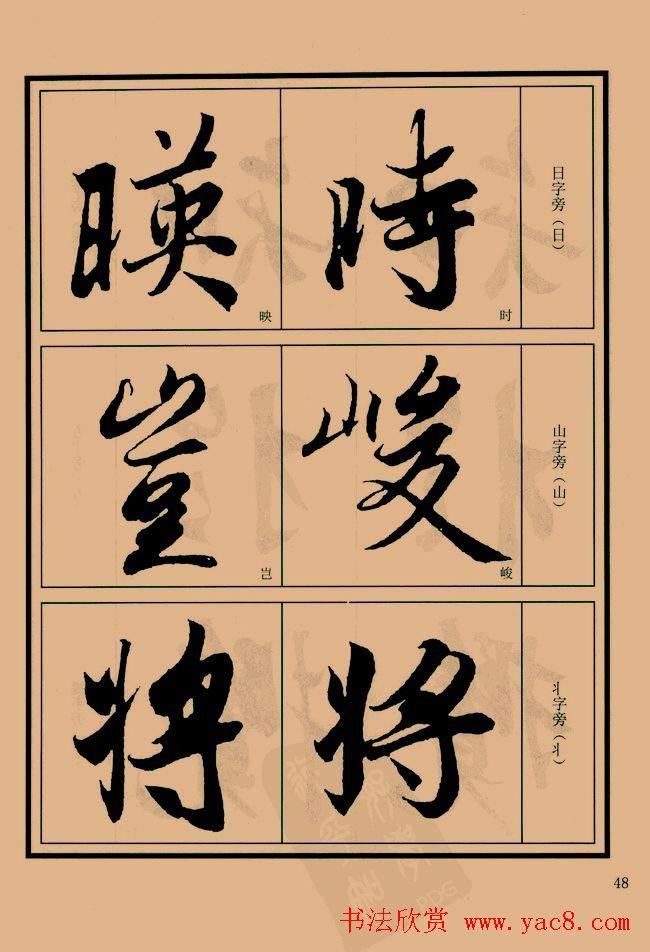 日字旁（日）
時
时
暎
映
山字旁（山）
峻
峻
豈
岂
丬字旁（丬）
将
将
48
书法欣赏 www.yac8.com